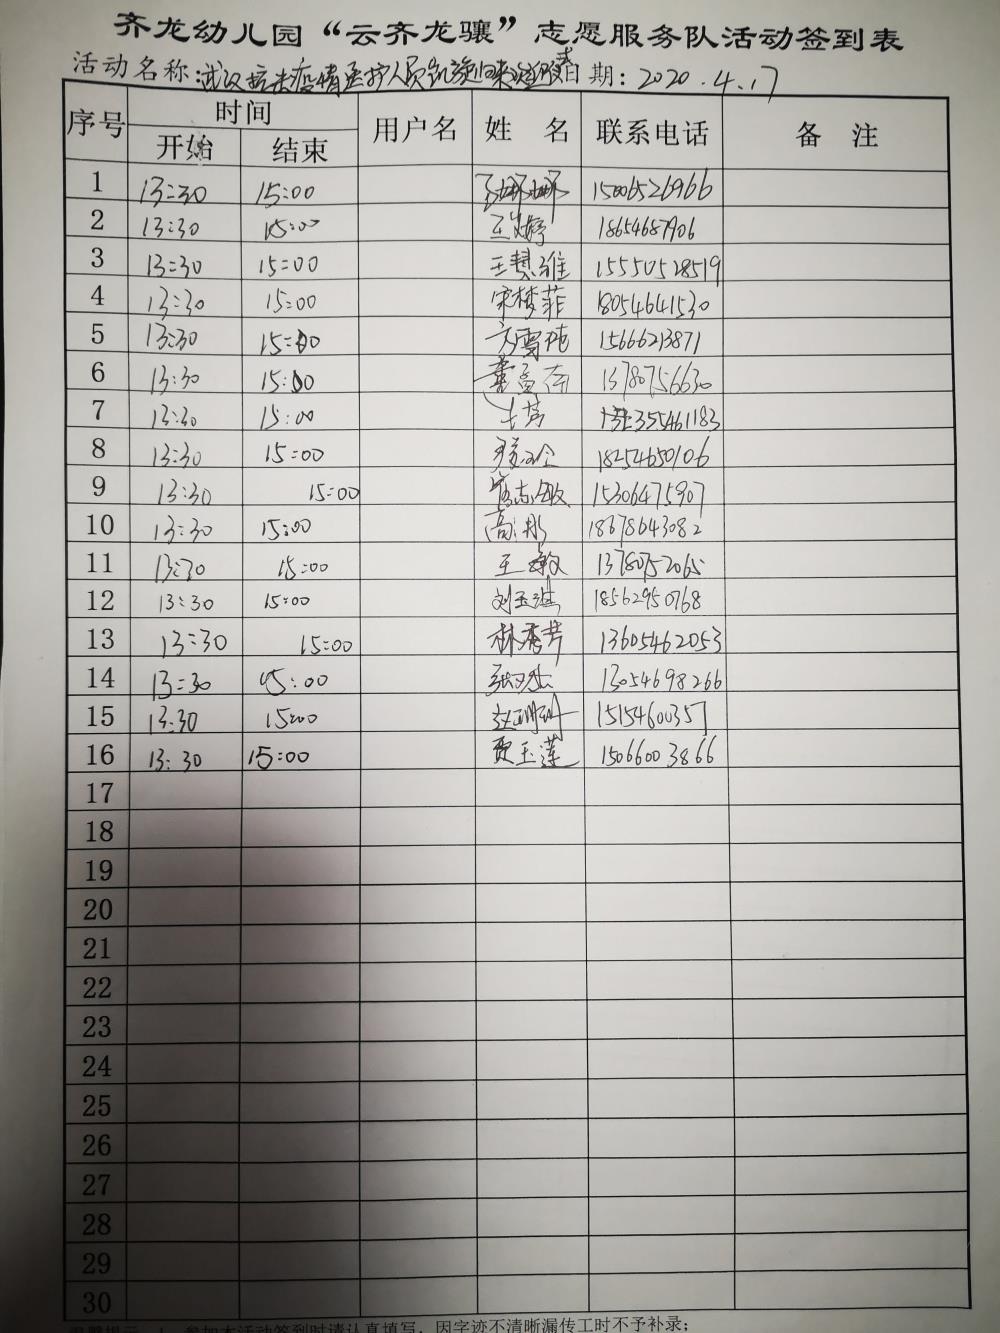 齐龙幼儿园“云齐龙骧”志愿服务队活动签到表
活动名称：武汉抗击疫情医护人员凯旋归来 日期：2020.4.17
序号 时间 用户名 姓 名 联系电话 备 注
开始 结束
1 13:30 15:00 15006526966
2 13:30 15:00 王 18654687906
3 13:30 15:00 王慧雅 15550528519
4 13:30 15:00 宋梦菲 18054641530
5 13:30 15:00 方雪 15666213871
6 13:30 15:00 董 13780756630
7 13:30 15:00 355461183
8 13:30 15:00 18254650106
9 13:30 15:00 崔志敏 15306475907
10 13:30 15:00 高 18678643082
11 13:30 15:00 王敏 13780752065
12 13:30 15:00 刘玉琪 18562950768
13 13:30 15:00 林秀芹 13605462053
14 13:30 15:00 张 13054698266
15 13:30 15:00 赵珊珊 15154600357
16 13:30 15:00 贾玉莲 15066003866
17
18
19
20
21
22
23
24
25
26
27
28
29
30
参加本活动签到时请认真填写，因字迹不清晰漏传工时不予补录；